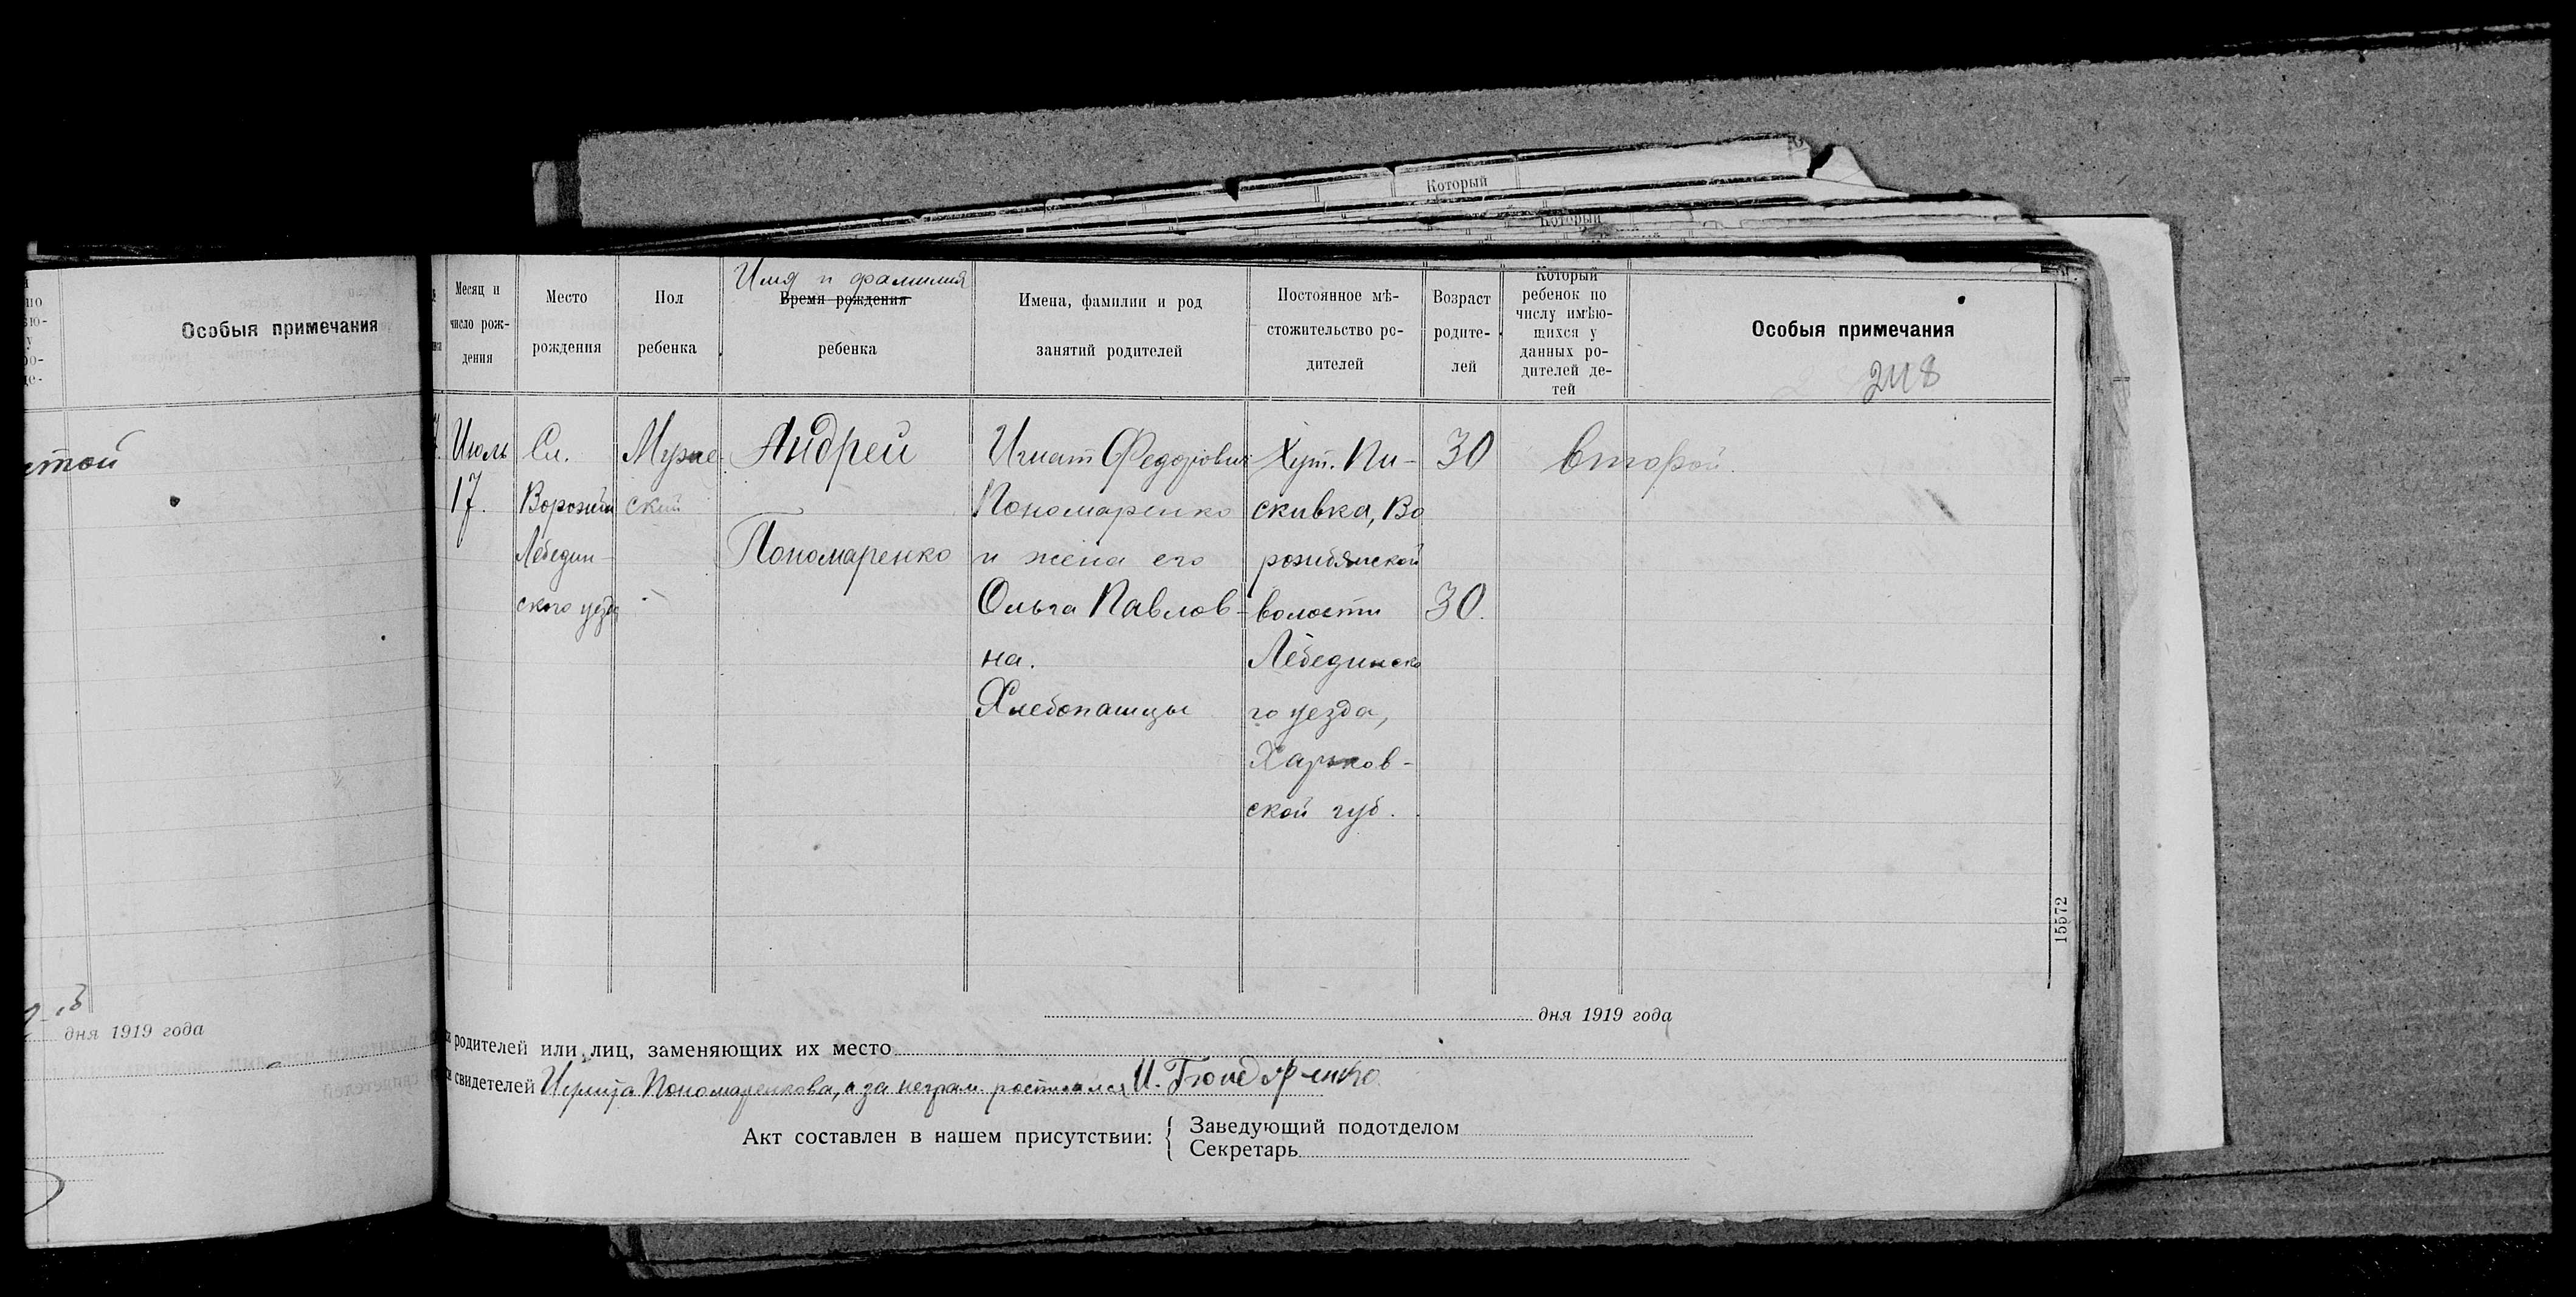 Который
Который
Особыя примечания
стой
дня 1919 года
Месяц и число рож-дения
Место рождения
Пол ребенка
Имя и фамилия
Время рождения
ребенка
Имена, фамилии и род занятий родителей
Постоянное мѣ-стожительство ро-дителей
Возраст родите-лей
Который ребенок по числу имѣю-щихся у данных ро-дителей де-тей
Особыя примечания
248
Июль
17.
Сл.
Ворожба
Лебедин-
ского уезда
Муже-
ский
Андрей
Пономаренко
Игнат Федорович
Пономаренко
и жена его
Ольга Павлов-
на.
Хлебопашцы
Хут. Пи-
скивка, Во
рожбянской
волости
Лебединско
го уезда,
Харьков-
ской губ.
30
30.
второй.
15572
дня 1919 года
родителей или лиц, заменяющих их место
свидетелей Пономаренкова, а за неграм. И. Бондаренко
Акт составлен в нашем присутствии: { Заведующий подотделом
Секретарь